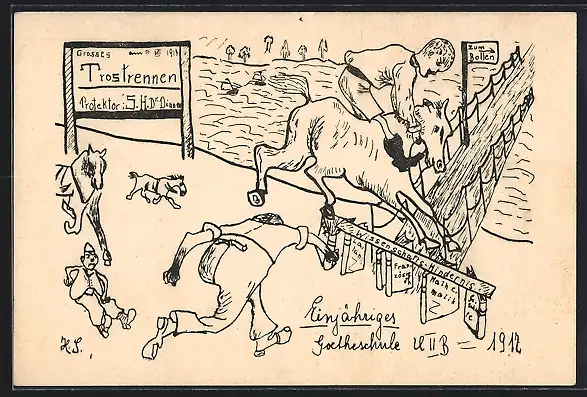 Grosses
Trostrennen
Protektor: S.H.Dr
zum
Bollen
Wissenschafts-Hindernis
Fran
zösi
Math e
matik
Einjähriges
Goetheschule U II B = 1912
H.S.